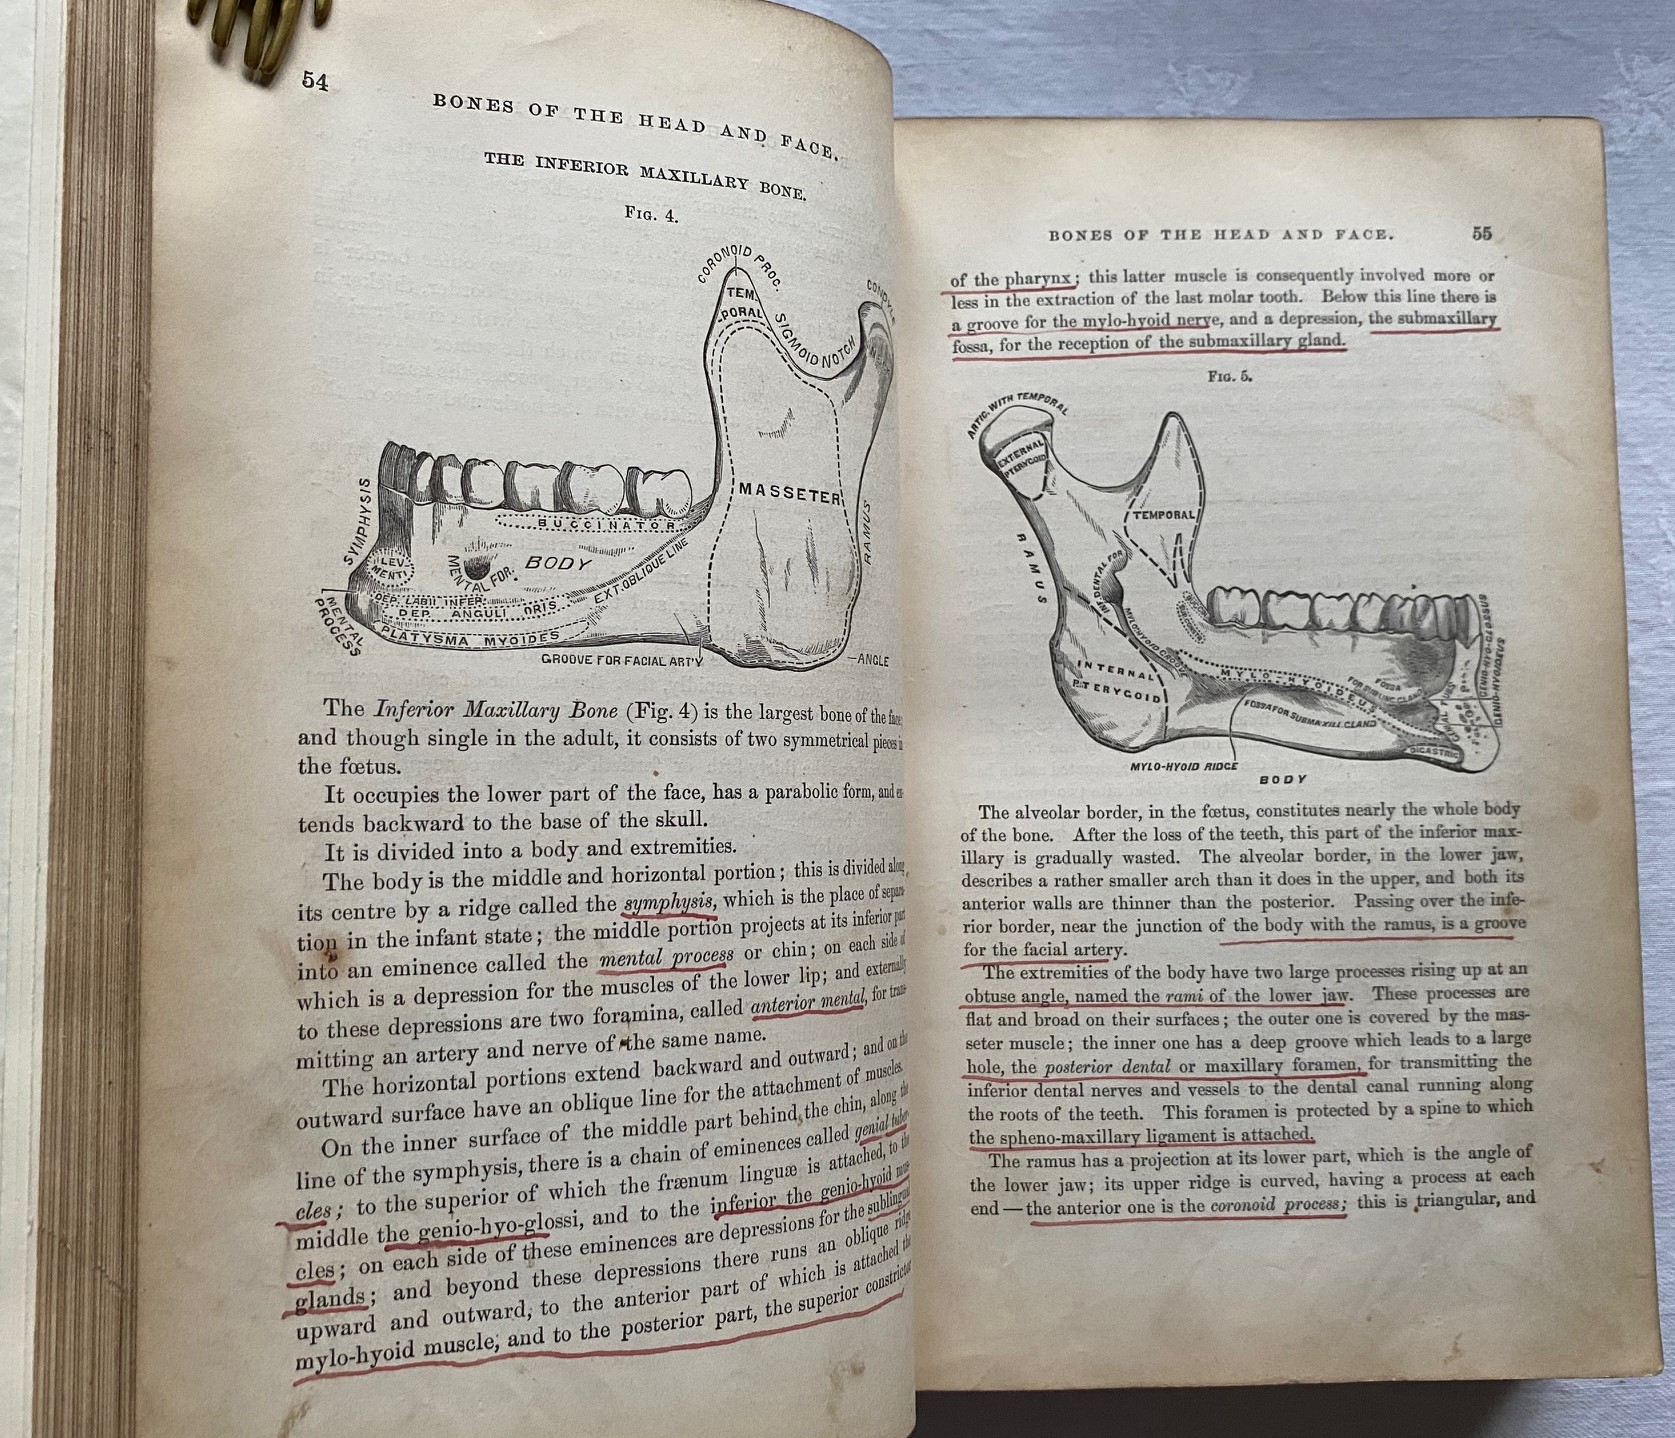 54
BONES OF THE HEAD AND FACE.
THE INFERIOR MAXILLARY BONE.
FIG. 4.
CORONOID PROC.
TEM-
PORAL
SIGMOID NOTCH
CONDYLE
MASSETER
SYMPHYSIS
BUCCINATOR
LEV.
MENTI
MENTAL FOR.
BODY
RAMUS
EXT. OBLIQUE LINE
DEP. LABII INFER.
DEP. ANGULI ORIS
MENTAL
PROCESS
PLATYSMA MYOIDES
GROOVE FOR FACIAL ART'Y
ANGLE
The Inferior Maxillary Bone (Fig. 4) is the largest bone of the face;
and though single in the adult, it consists of two symmetrical pieces in
the fœtus.
It occupies the lower part of the face, has a parabolic form, and ex-
tends backward to the base of the skull.
It is divided into a body and extremities.
The body is the middle and horizontal portion; this is divided along
its centre by a ridge called the symphysis, which is the place of separa-
tion in the infant state; the middle portion projects at its inferior part
into an eminence called the mental process or chin; on each side of
which is a depression for the muscles of the lower lip; and externally
to these depressions are two foramina, called anterior mental, for trans-
mitting an artery and nerve of the same name.
The horizontal portions extend backward and outward; and on the
outward surface have an oblique line for the attachment of muscles.
On the inner surface of the middle part behind the chin, along the
line of the symphysis, there is a chain of eminences called genial tuber-
cles; to the superior of which the frænum linguæ is attached, to the
middle the genio-hyo-glossi, and to the inferior the genio-hyoid mus-
cles; on each side of these eminences are depressions for the sublingual
glands; and beyond these depressions there runs an oblique ridge
upward and outward, to the anterior part of which is attached the
mylo-hyoid muscle, and to the posterior part, the superior constrictor
BONES OF THE HEAD AND FACE. 55
of the pharynx; this latter muscle is consequently involved more or
less in the extraction of the last molar tooth. Below this line there is
a groove for the mylo-hyoid nerve, and a depression, the submaxillary
fossa, for the reception of the submaxillary gland.
FIG. 5.
ARTIC. WITH TEMPORAL
EXTERNAL
PTERYGOID
TEMPORAL
RAMUS
INF. DENTAL FOR.
MYLO-HYOID GROOVE
GENIO-HYO-GLOSSUS
GENIO-HYOIDEUS
INTERNAL
PTERYGOID
MYLO-HYOIDEUS
FOSSA
FOR SUBLING. GLAND
FOSSA FOR SUBMAXILL. GLAND
DIGASTRIC
MYLO-HYOID RIDGE
BODY
The alveolar border, in the fœtus, constitutes nearly the whole body
of the bone. After the loss of the teeth, this part of the inferior max-
illary is gradually wasted. The alveolar border, in the lower jaw,
describes a rather smaller arch than it does in the upper, and both its
anterior walls are thinner than the posterior. Passing over the infe-
rior border, near the junction of the body with the ramus, is a groove
for the facial artery.
The extremities of the body have two large processes rising up at an
obtuse angle, named the rami of the lower jaw. These processes are
flat and broad on their surfaces; the outer one is covered by the mas-
seter muscle; the inner one has a deep groove which leads to a large
hole, the posterior dental or maxillary foramen, for transmitting the
inferior dental nerves and vessels to the dental canal running along
the roots of the teeth. This foramen is protected by a spine to which
the spheno-maxillary ligament is attached.
The ramus has a projection at its lower part, which is the angle of
the lower jaw; its upper ridge is curved, having a process at each
end—the anterior one is the coronoid process; this is triangular, and